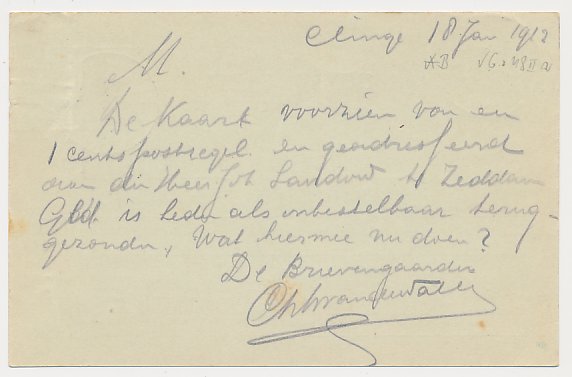 Clinge 18 Jan 1912
M.
De Kaart voorzien van een
1 cents postzegel en geadresseerd
aan den Heer Joh Landow te Zeddam
Gld. is heden als onbestelbaar terug-
gezonden, Wat hiermee nu doen?
De Brievengaarder